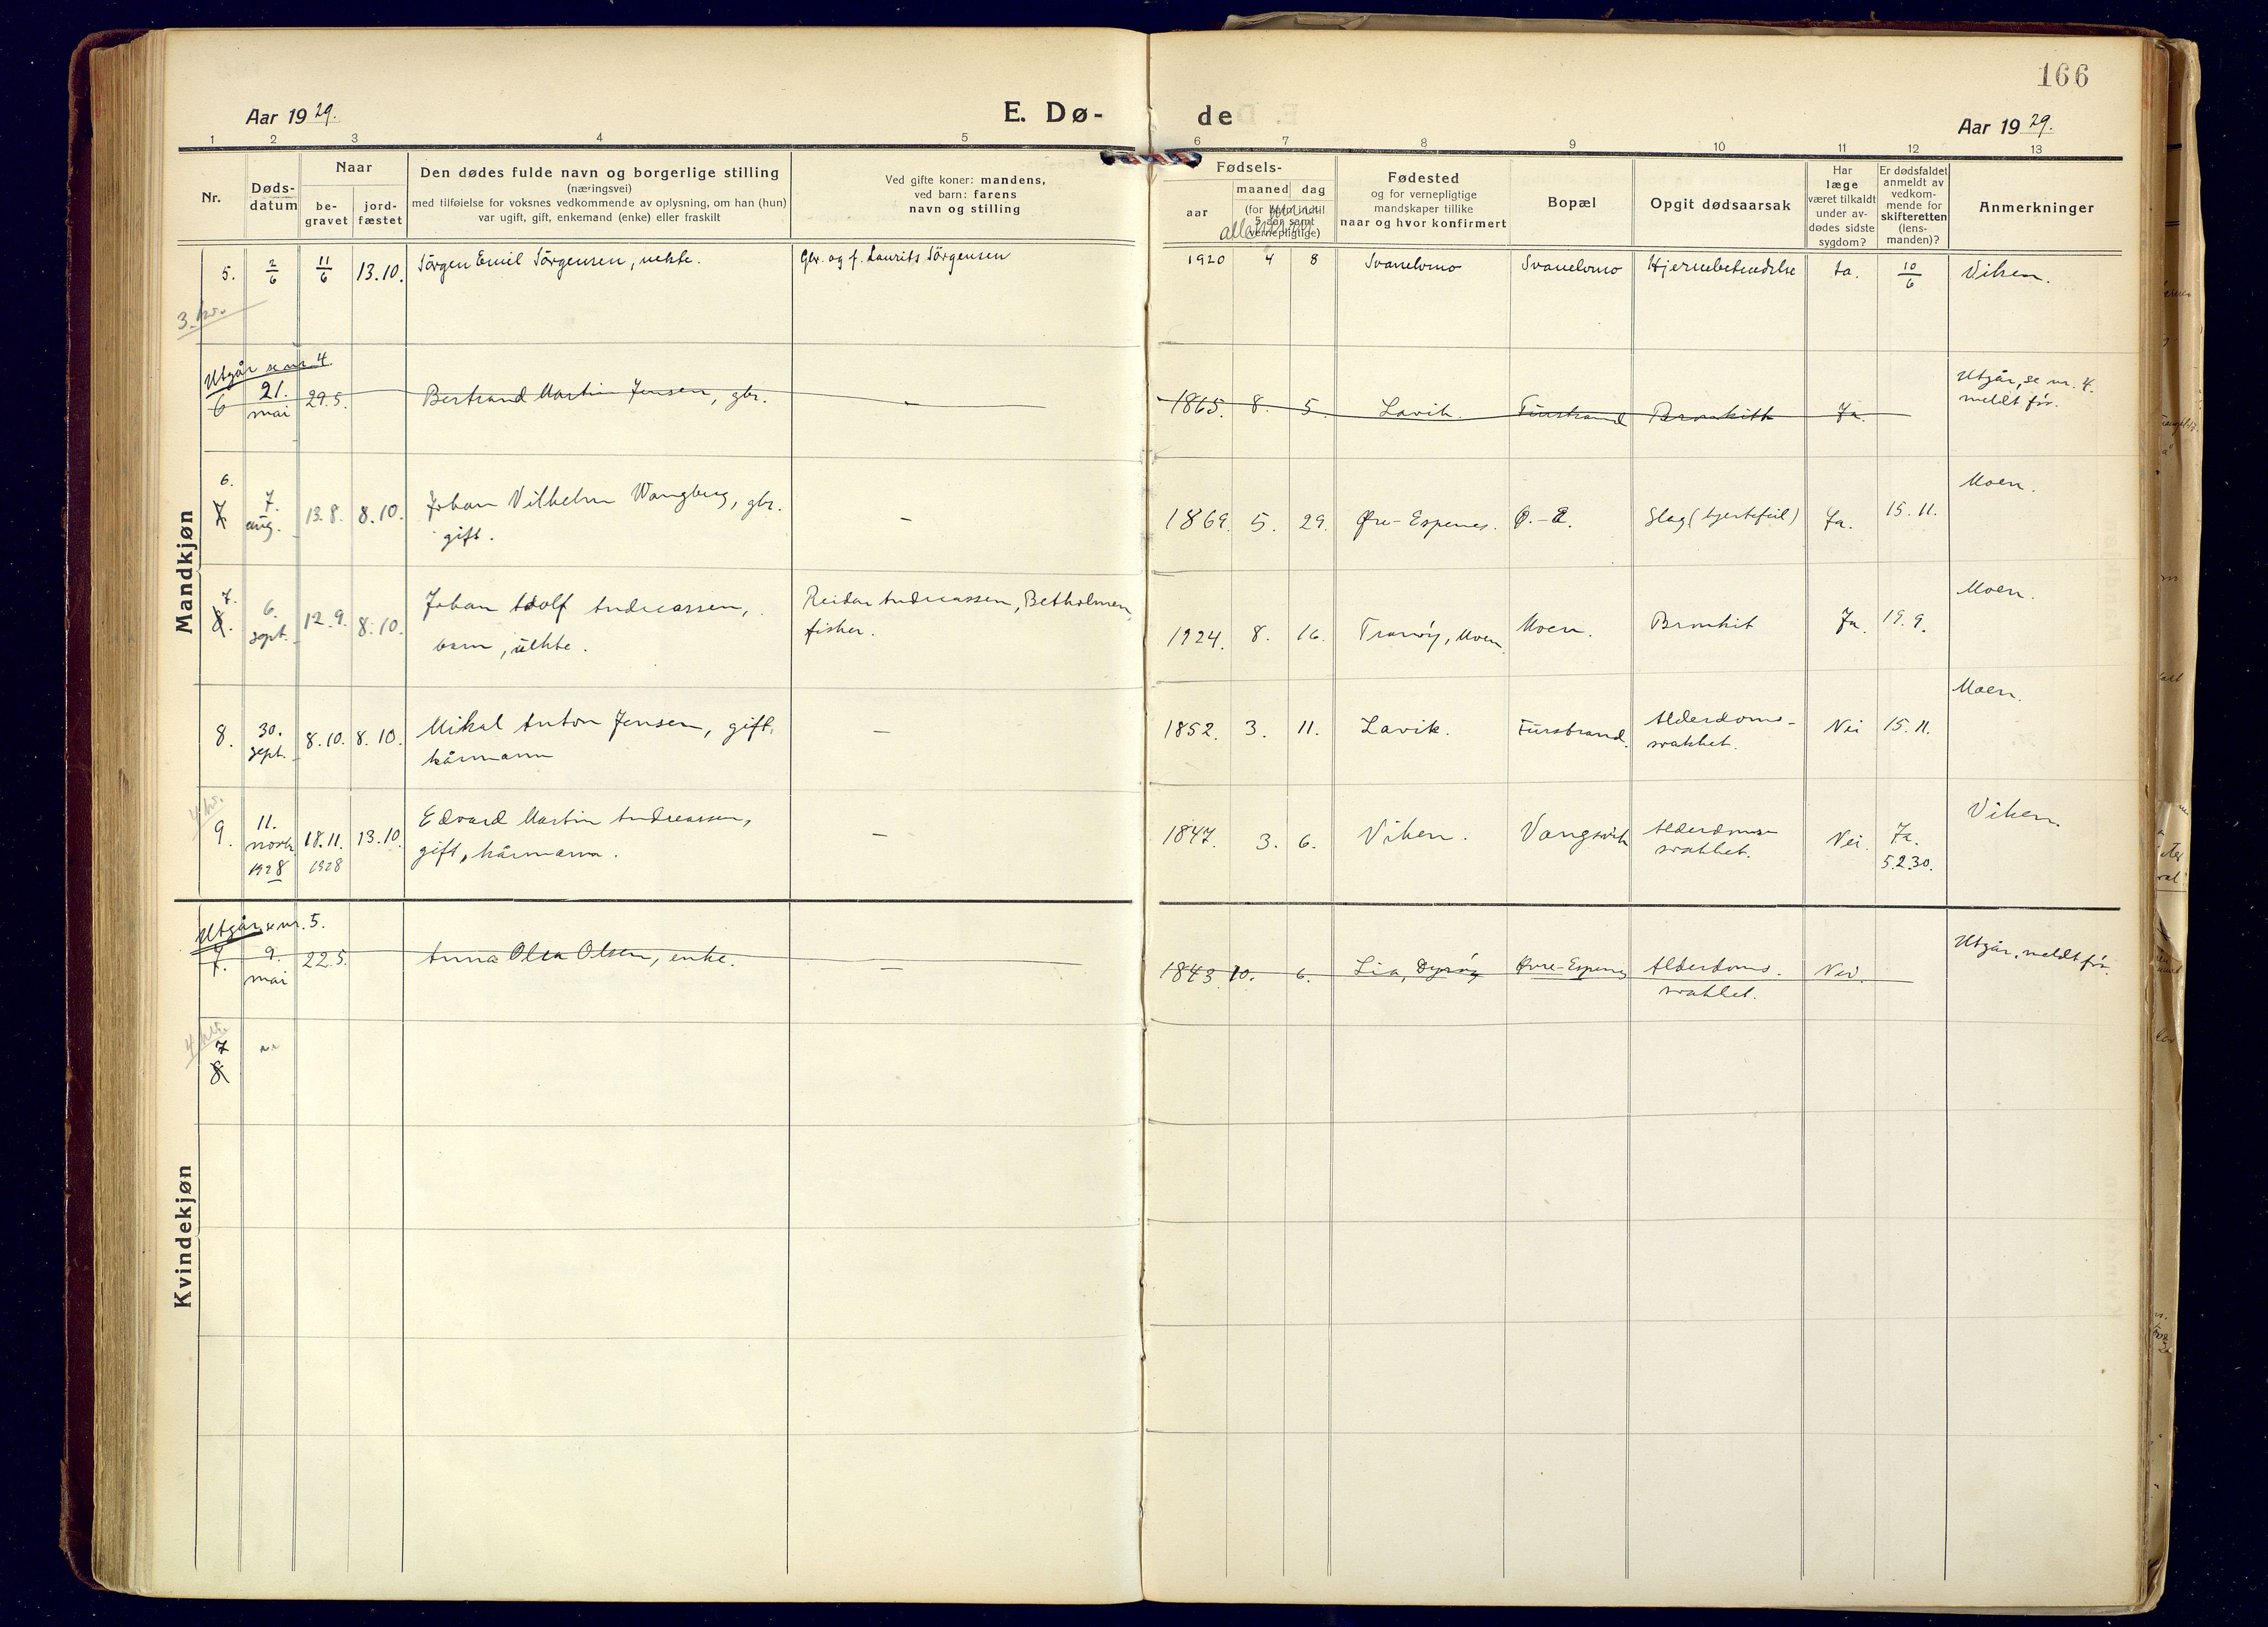 166
Aar 1929.
E. Dø-
de
Aar 1929.
1 2 3 4 5 6 7 8 9 10 11 12 13
Nr.
Døds-
datum
Naar
be-
gravet
jord-
fæstet
Den dødes fulde navn og borgerlige stilling
(næringsvei)
med tilføielse for voksnes vedkommende av oplysning, om han (hun)
var ugift, gift, enkemand (enke) eller fraskilt
Ved gifte koner: mandens,
ved barn: farens
navn og stilling
Fødsels-
aar
maaned
dag
(for barn indtil
5 aar samt
vernepligtige)
Fødested
og for vernepligtige
mandskaper tillike
naar og hvor konfirmert
Bopæl
Opgit dødsaarsak
Har
læge
været tilkaldt
under av-
dødes sidste
sygdom?
Er dødsfaldet
anmeldt av
vedkom-
mende for
skifteretten
(lens-
manden)?
Anmerkninger
Mandkjøn
5. 2/6 11/6 13.10. Jörgen Emil Jörgensen, uekte. Gbr. og f. Laurits Jörgensen 1920 4 8 Svanelvmo Svanelvmo Hjernebetendelse Ja. 10/6 Viken.
3. kv.
Utgår se nr 4.
6 21. mai 29.5. Bertrand Martin Jensen, gbr. – 1865. 8. 5. Lavik. Furstrand Bronkitt Ja. Utgår, se nr. 4.
meldt før.
6.
7 7. aug. 13.8. 8.10. Johan Vilhelm Wangberg, gbr. – 1869. 5. 29. Øre-Espenes. Ø.-E. Slag (hjertefeil) Ja. 15.11. Moen.
gift.
7.
8. 6. sept. 12.9. 8.10. Johan Adolf Andreassen, Reidar Andreassen, Betholmen, 1924. 8. 16. Tranöy, Moen. Moen. Bronkit Ja. 19.9. Moen.
barn, uekte. fisker.
8. 30. sept. 8.10. 8.10. Mikal Anton Jensen, gift, – 1852. 3. 11. Lavik. Furstrand. Alderdoms- Nei 15.11. Moen.
kårmann svakhet.
4 kv.
9. 11. novbr. 1928 18.11. 1928 13.10. Edvard Martin Andreassen, – 1847. 3. 6. Viken. Vangsvik Alderdoms- Nei. Ja. 5.2.30. Viken.
gift, kårmann. svakhet.
Kvindekjøn
Utgår se nr. 5.
7. 9. mai 22.5. Anna Olea Olsen, enke. – 1843. 10. 6. Lia, Dyröy Øvre-Espenes Alderdoms- Nei. Utgår, meldt før.
svakhet.
4 kv.
7
8